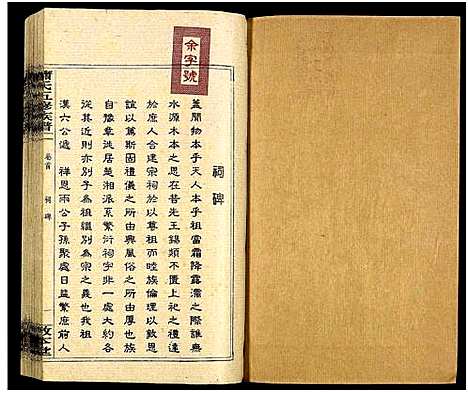 余字號
祠碑
蓋聞物本乎天人本乎祖當霜降露濡之際誰無
水源木本之思在昔先王錫類不置上祀之禮達
於庶人合建宗祠於以尊祖而睦族倫理以敦恩
誼以篤斯固禮儀之所由興風俗之所由厚也我族
自豫章遷居楚湘派系繁衍祠宇林立
從其近則亦別子為祖繼別為宗之義也我祖
漢六公遞 祥恩兩公子孫聚處日益繁庶前人
氏五修族譜
卷首 祠碑
敦本堂